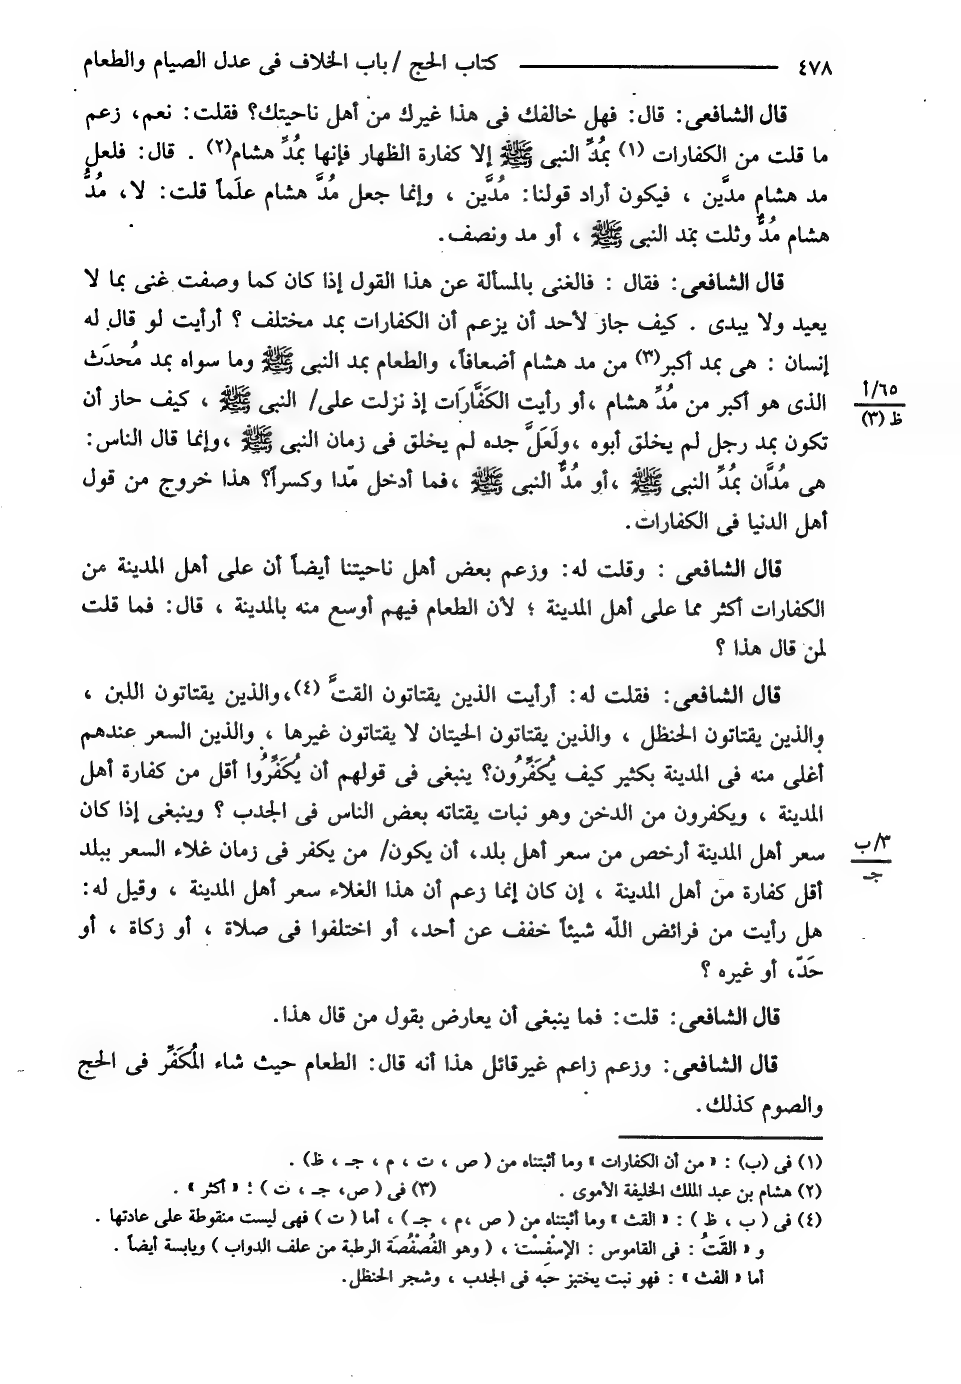 ٤٧٨ ـــــــ كتاب الحج / باب الخلاف فى عدل الصيام والطعام
قال الشافعى: قال: فهل خالفك فى هذا غيرك من أهل ناحيتك؟ فقلت: نعم، زعم
ما قلت من الكفارات (١) بمُدِّ النبى ﷺ إلا كفارة الظهار فإنها بمُدِّ هشام(٢) . قال: فلعل
مد هشام مدَّين ، فيكون أراد قولنا: مُدَّين ، وإنما جعل مُدَّ هشام علَماً قلت: لا، مُدُّ
هشام مُدٌّ وثلث بمَد النبى ﷺ ، أو مد ونصف.
قال الشافعى: فقال : فالغنى بالمسألة عن هذا القول إذا كان كما وصفت غنى بما لا
يعيد ولا يبدى . كيف جاز لأحد أن يزعم أن الكفارات بمد مختلف ؟ أرأيت لو قال له
إنسان : هى بمد أكبر(٣) من مد هشام أضعافاً، والطعام بمد النبى ﷺ وما سواه بمد مُحدَث
الذى هو أكبر من مُدِّ هشام ،أو رأيت الكَفَّارَات إذ نزلت على/ النبى ﷺ ، كيف حاز أن
٦٥/أ
ظ (٣)
تكون بمد رجل لم يخلق أبوه ،ولَعَلَّ جده لم يخلق فى زمان النبى ﷺ ،وإنما قال الناس:
هى مُدَّان بمُدِّ النبى ﷺ ،أو مُدٌّ النبى ﷺ ،فما أدخل مّدا وكسراً؟ هذا خروج من قول
أهل الدنيا فى الكفارات.
قال الشافعى : وقلت له: وزعم بعض أهل ناحيتنا أيضاً أن على أهل المدينة من
الكفارات أكثر مما على أهل المدينة ؛ لأن الطعام فيهم أوسع منه بالمدينة ، قال: فما قلت
لمن قال هذا ؟
قال الشافعى: فقلت له: أرأيت الذين يقتاتون القتَّ (٤)،والذين يقتاتون اللبن ،
والذين يقتاتون الحنظل ، والذين يقتاتون الحيتان لا يقتاتون غيرها ، والذين السعر عندهم
أغلى منه فى المدينة بكثير كيف يُكَفِّرُون؟ ينبغى فى قولهم أن يُكَفِّرُوا أقل من كفارة أهل
المدينة ، ويكفرون من الدخن وهو نبات يقتاته بعض الناس فى الجدب ؟ وينبغى إذا كان
سعر أهل المدينة أرخص من سعر أهل بلد، أن يكون/ من يكفر فى زمان غلاء السعر ببلد
٣/ب
جـ
أقل كفارة من أهل المدينة ، إن كان إنما زعم أن هذا الغلاء سعر أهل المدينة ، وقيل له:
هل رأيت من فرائض اللّه شيئاً خفف عن أحد، أو اختلفوا فى صلاة ، أو زكاة ، أو
حَدّ، أو غيره ؟
قال الشافعى: قلت: فما ينبغى أن يعارض بقول من قال هذا.
قال الشافعى: وزعم زاعم غيرقائل هذا أنه قال: الطعام حيث شاء المُكَفِّر فى الحج
والصوم كذلك.
(١) فى (ب) : « من أن الكفارات » وما أثبتناه من ( ص ، ت ، م ، جـ ، ظ) .
(٢) هشام بن عبد الملك الخليفة الأموى . (٣) فى ( ص، جـ ، ت ) : « أكثر » .
(٤) فى ( ب ، ظ ) : « الفث » وما أثبتناه من ( ص ،م ، جـ ) ، أما ( ت ) فهى ليست منقوطة على عادتها .
و « القَتُّ : فى القاموس : الإسْفِسْت ، ( وهو الفُصْفُصَة الرطبة من علف الدواب ) ويابسة أيضاً .
أما « الفث » : فهو نبت يختبز حبه فى الجدب ، وشجر الحنظل.